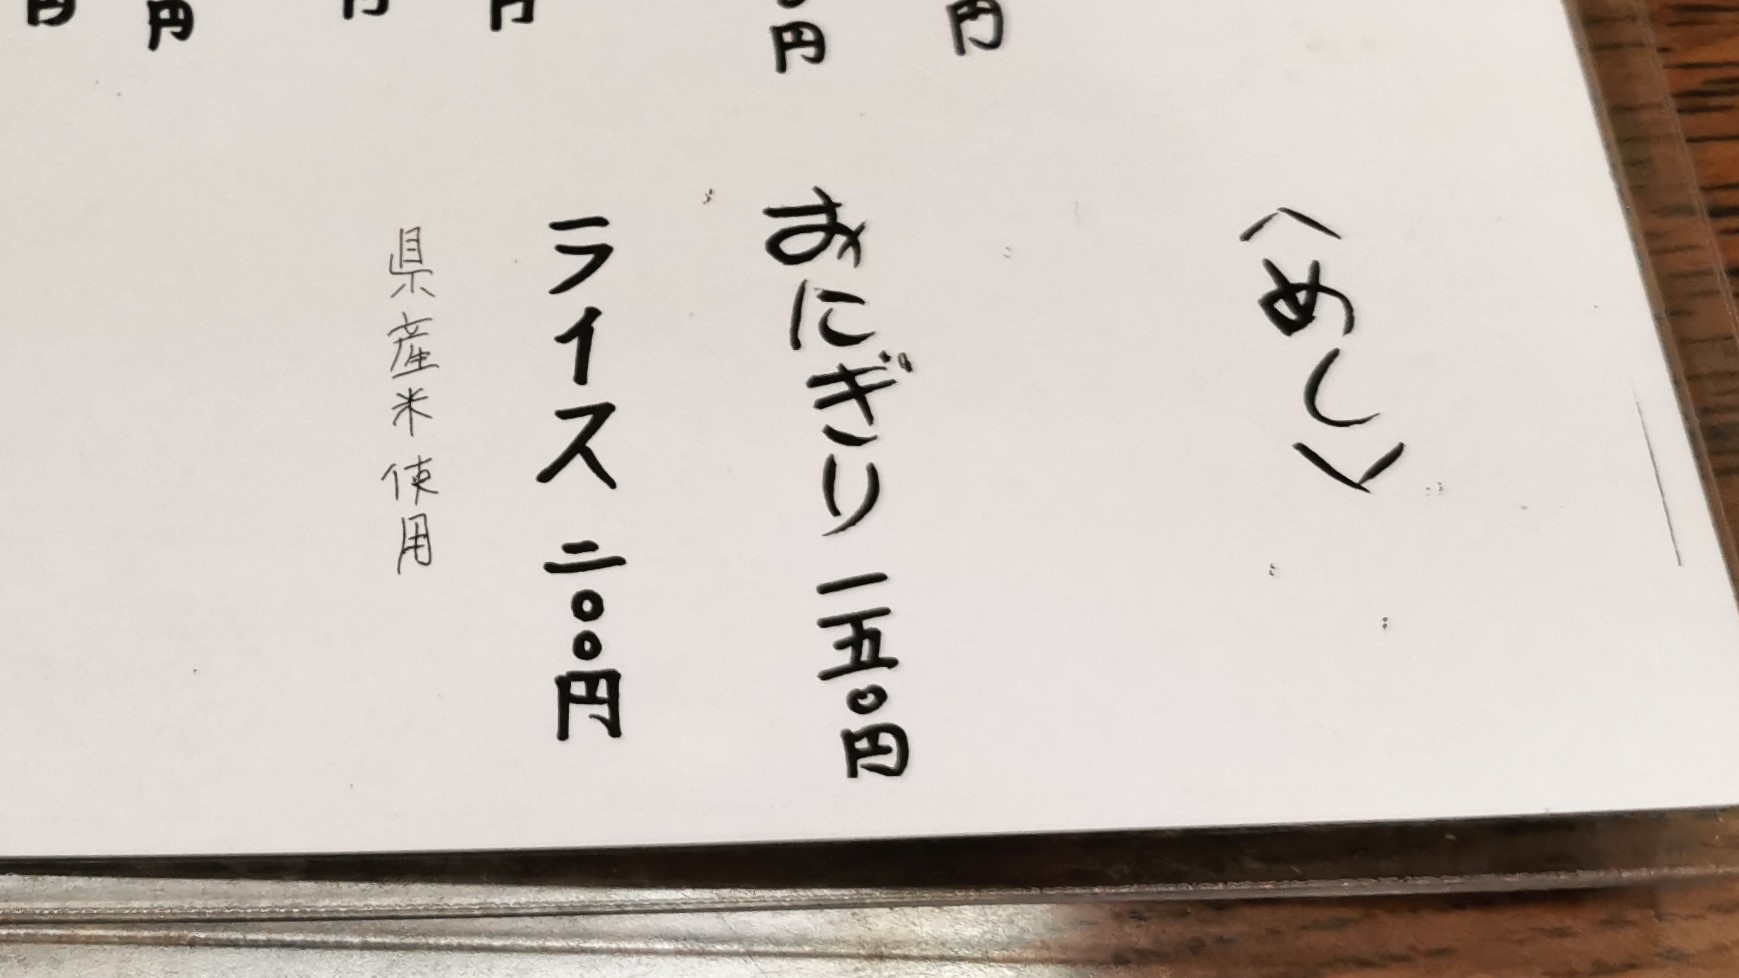 〈めし〉
おにぎり 一五〇円
ライス 二〇〇円
県産米使用
円
〇円
円
円
円
円